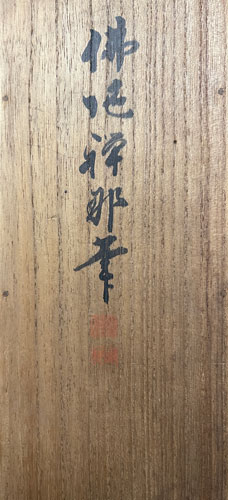 佛陀禅那筆